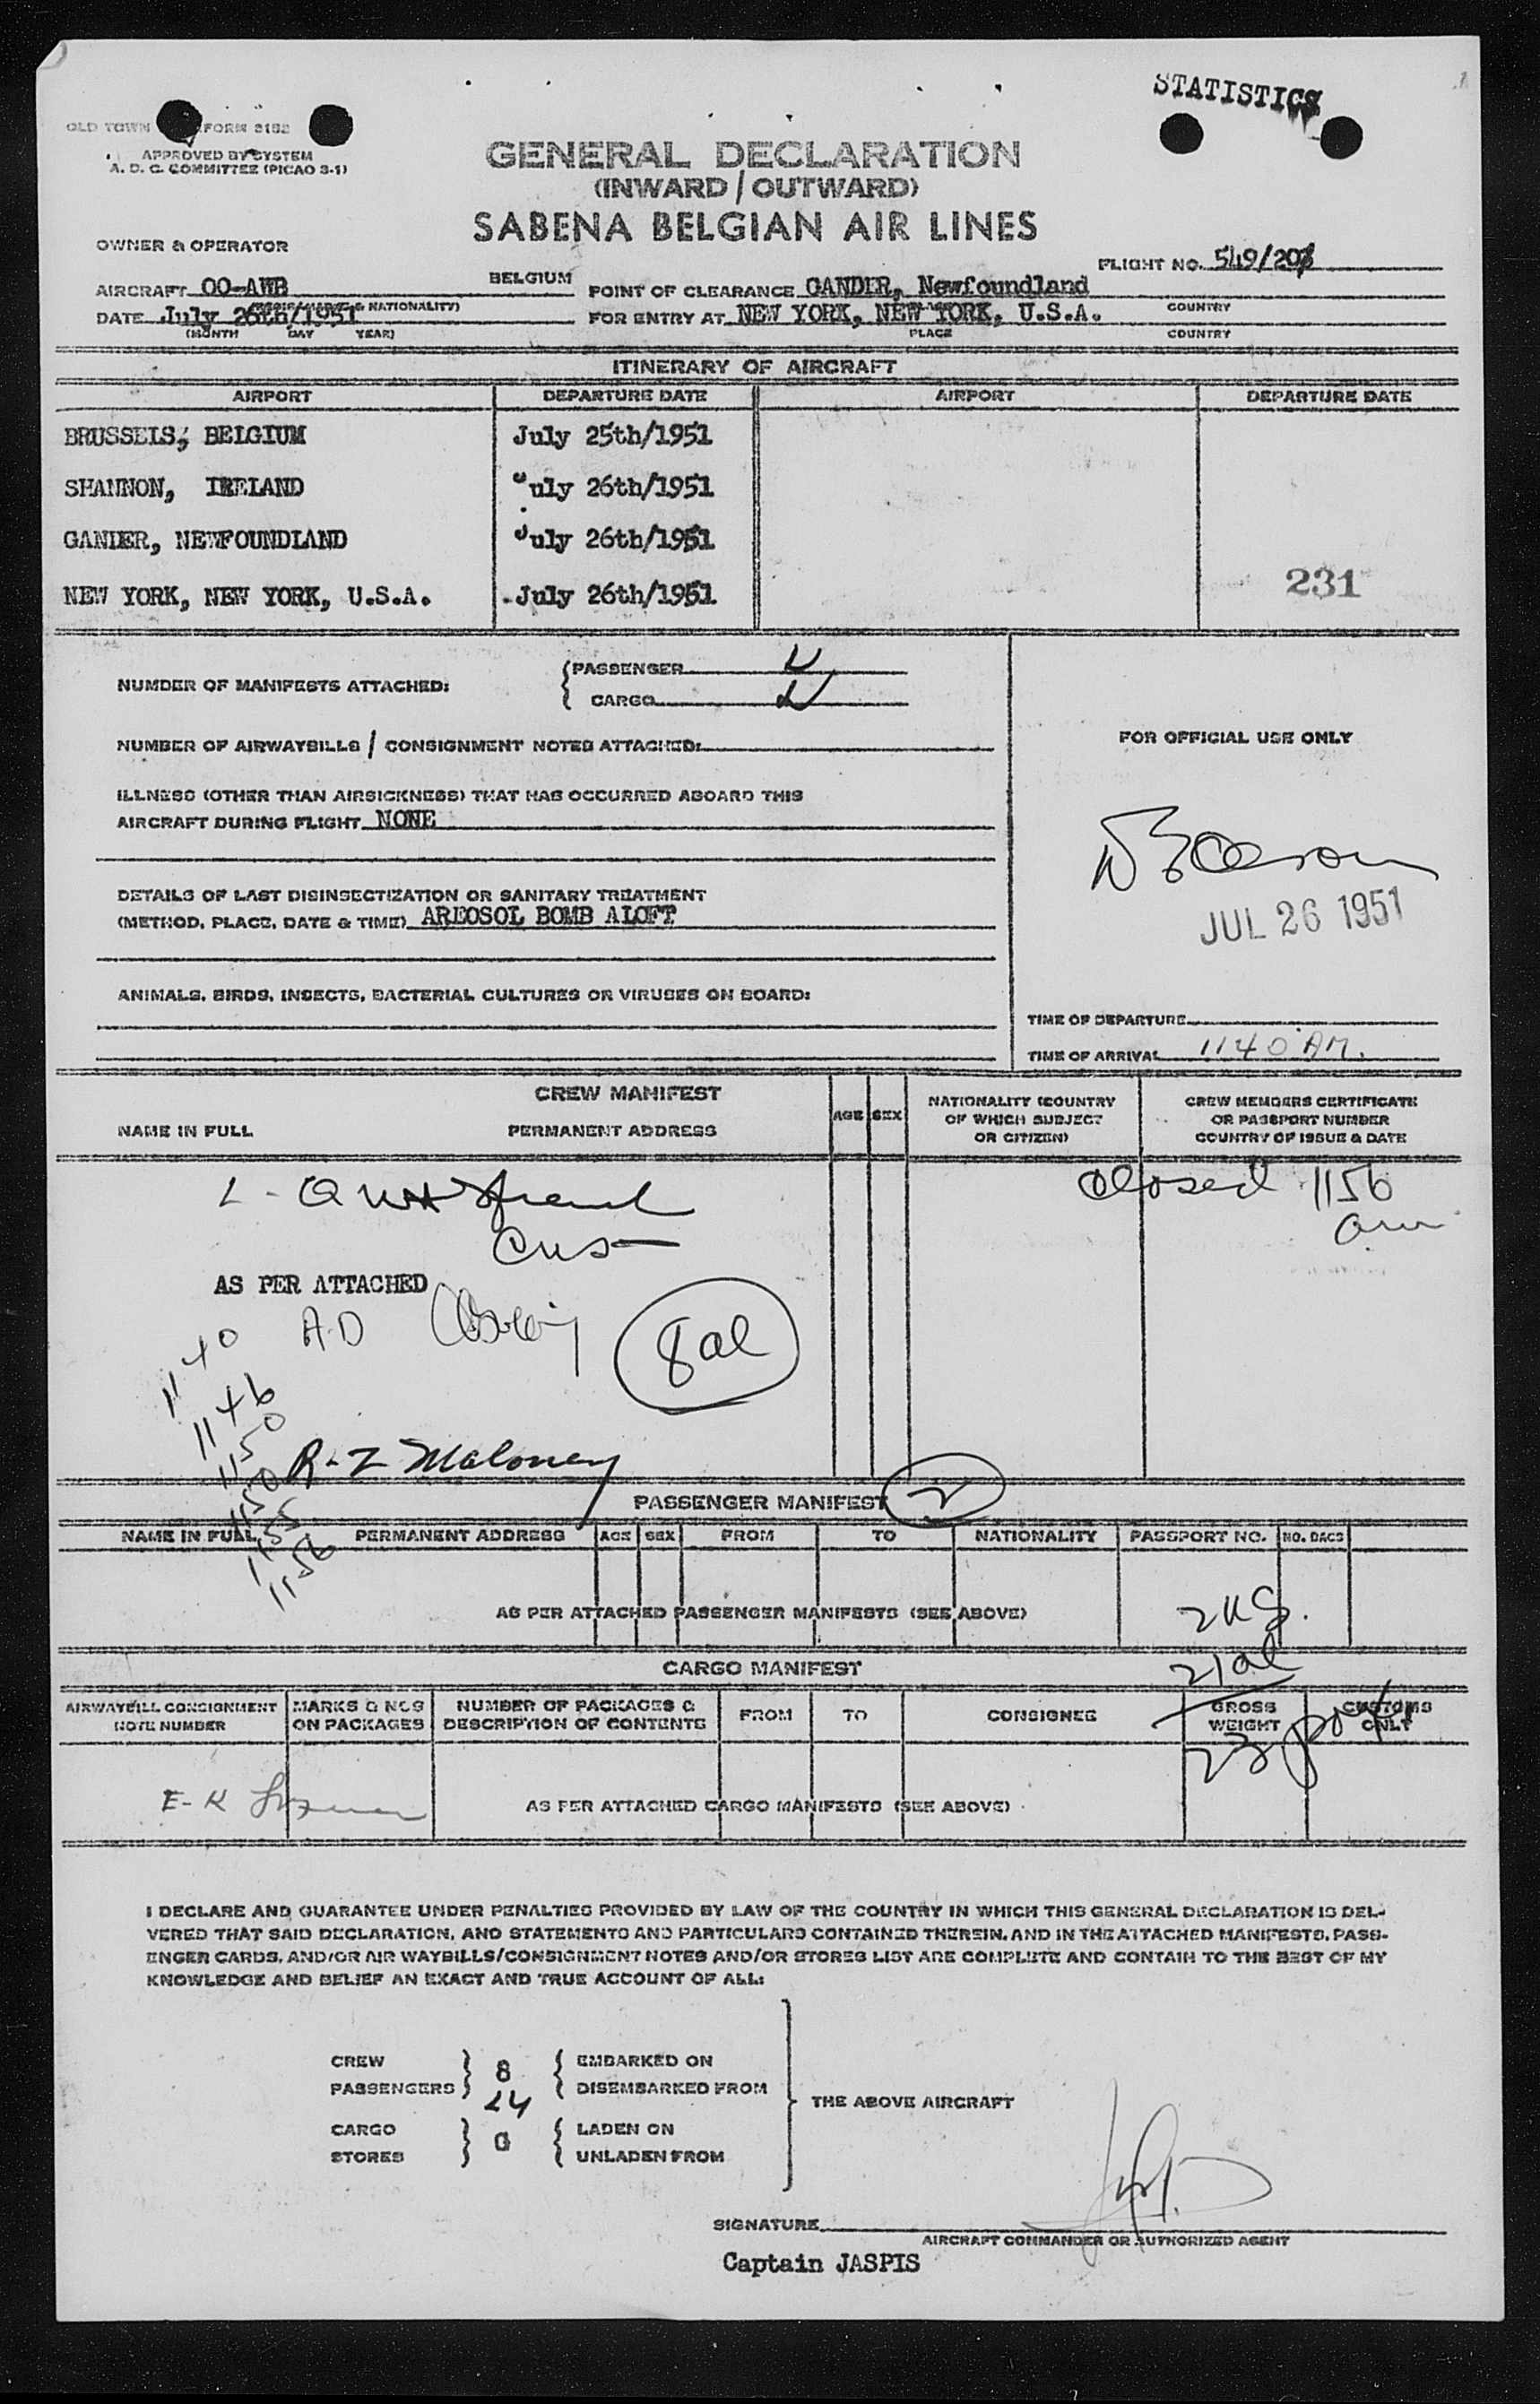 STATISTICS
OLD TOWN FORM 3182
APPROVED BY SYSTEM
A. D. C. COMMITTEE (PICAO 3-1)
GENERAL DECLARATION
(INWARD / OUTWARD)
SABENA BELGIAN AIR LINES
OWNER & OPERATOR
FLIGHT NO. 549/207
AIRCRAFT OO-AWB BELGIUM POINT OF CLEARANCE GANDER, Newfoundland
& NATIONALITY) COUNTRY
DATE July 26th/1951 FOR ENTRY AT NEW YORK, NEW YORK, U.S.A.
(MONTH DAY YEAR) PLACE COUNTRY
ITINERARY OF AIRCRAFT
AIRPORT DEPARTURE DATE AIRPORT DEPARTURE DATE
BRUSSELS, BELGIUM July 25th/1951
SHANNON, IRELAND July 26th/1951
GANDER, NEWFOUNDLAND July 26th/1951
NEW YORK, NEW YORK, U.S.A. July 26th/1951 231
NUMBER OF MANIFESTS ATTACHED: PASSENGER
CARGO
NUMBER OF AIRWAYBILLS / CONSIGNMENT NOTES ATTACHED:
FOR OFFICIAL USE ONLY
ILLNESS (OTHER THAN AIRSICKNESS) THAT HAS OCCURRED ABOARD THIS
AIRCRAFT DURING FLIGHT NONE
DETAILS OF LAST DISINSECTIZATION OR SANITARY TREATMENT
(METHOD, PLACE, DATE & TIME) AREOSOL BOMB ALOFT
JUL 26 1951
ANIMALS, BIRDS, INSECTS, BACTERIAL CULTURES OR VIRUSES ON BOARD:
TIME OF DEPARTURE
TIME OF ARRIVAL 1140 AM.
CREW MANIFEST
NAME IN FULL PERMANENT ADDRESS AGE SEX NATIONALITY (COUNTRY OF WHICH SUBJECT OR CITIZEN) CREW MEMBERS CERTIFICATE OR PASSPORT NUMBER COUNTRY OF ISSUE & DATE
closed 1156
am
Cus
AS PER ATTACHED
A.D
8 al
1140
1146
1150
1150
1155
1156
R-Z Maloney
PASSENGER MANIFEST 2
NAME IN FULL PERMANENT ADDRESS AGE SEX FROM TO NATIONALITY PASSPORT NO. NO. BAGS
AS PER ATTACHED PASSENGER MANIFESTS (SEE ABOVE)
2 US.
21 al
CARGO MANIFEST
AIRWAYBILL CONSIGNMENT NOTE NUMBER MARKS & NOS ON PACKAGES NUMBER OF PACKAGES & DESCRIPTION OF CONTENTS FROM TO CONSIGNEE GROSS WEIGHT CUSTOMS ONLY
23
E-K
AS PER ATTACHED CARGO MANIFESTS (SEE ABOVE)
I DECLARE AND GUARANTEE UNDER PENALTIES PROVIDED BY LAW OF THE COUNTRY IN WHICH THIS GENERAL DECLARATION IS DEL-
VERED THAT SAID DECLARATION, AND STATEMENTS AND PARTICULARS CONTAINED THEREIN, AND IN THE ATTACHED MANIFESTS, PASS-
ENGER CARDS, AND/OR AIR WAYBILLS/CONSIGNMENT NOTES AND/OR STORES LIST ARE COMPLETE AND CONTAIN TO THE BEST OF MY
KNOWLEDGE AND BELIEF AN EXACT AND TRUE ACCOUNT OF ALL:
CREW 8 EMBARKED ON
PASSENGERS 24 DISEMBARKED FROM
THE ABOVE AIRCRAFT
CARGO 0 LADEN ON
STORES UNLADEN FROM
SIGNATURE
AIRCRAFT COMMANDER OR AUTHORIZED AGENT
Captain JASPIS